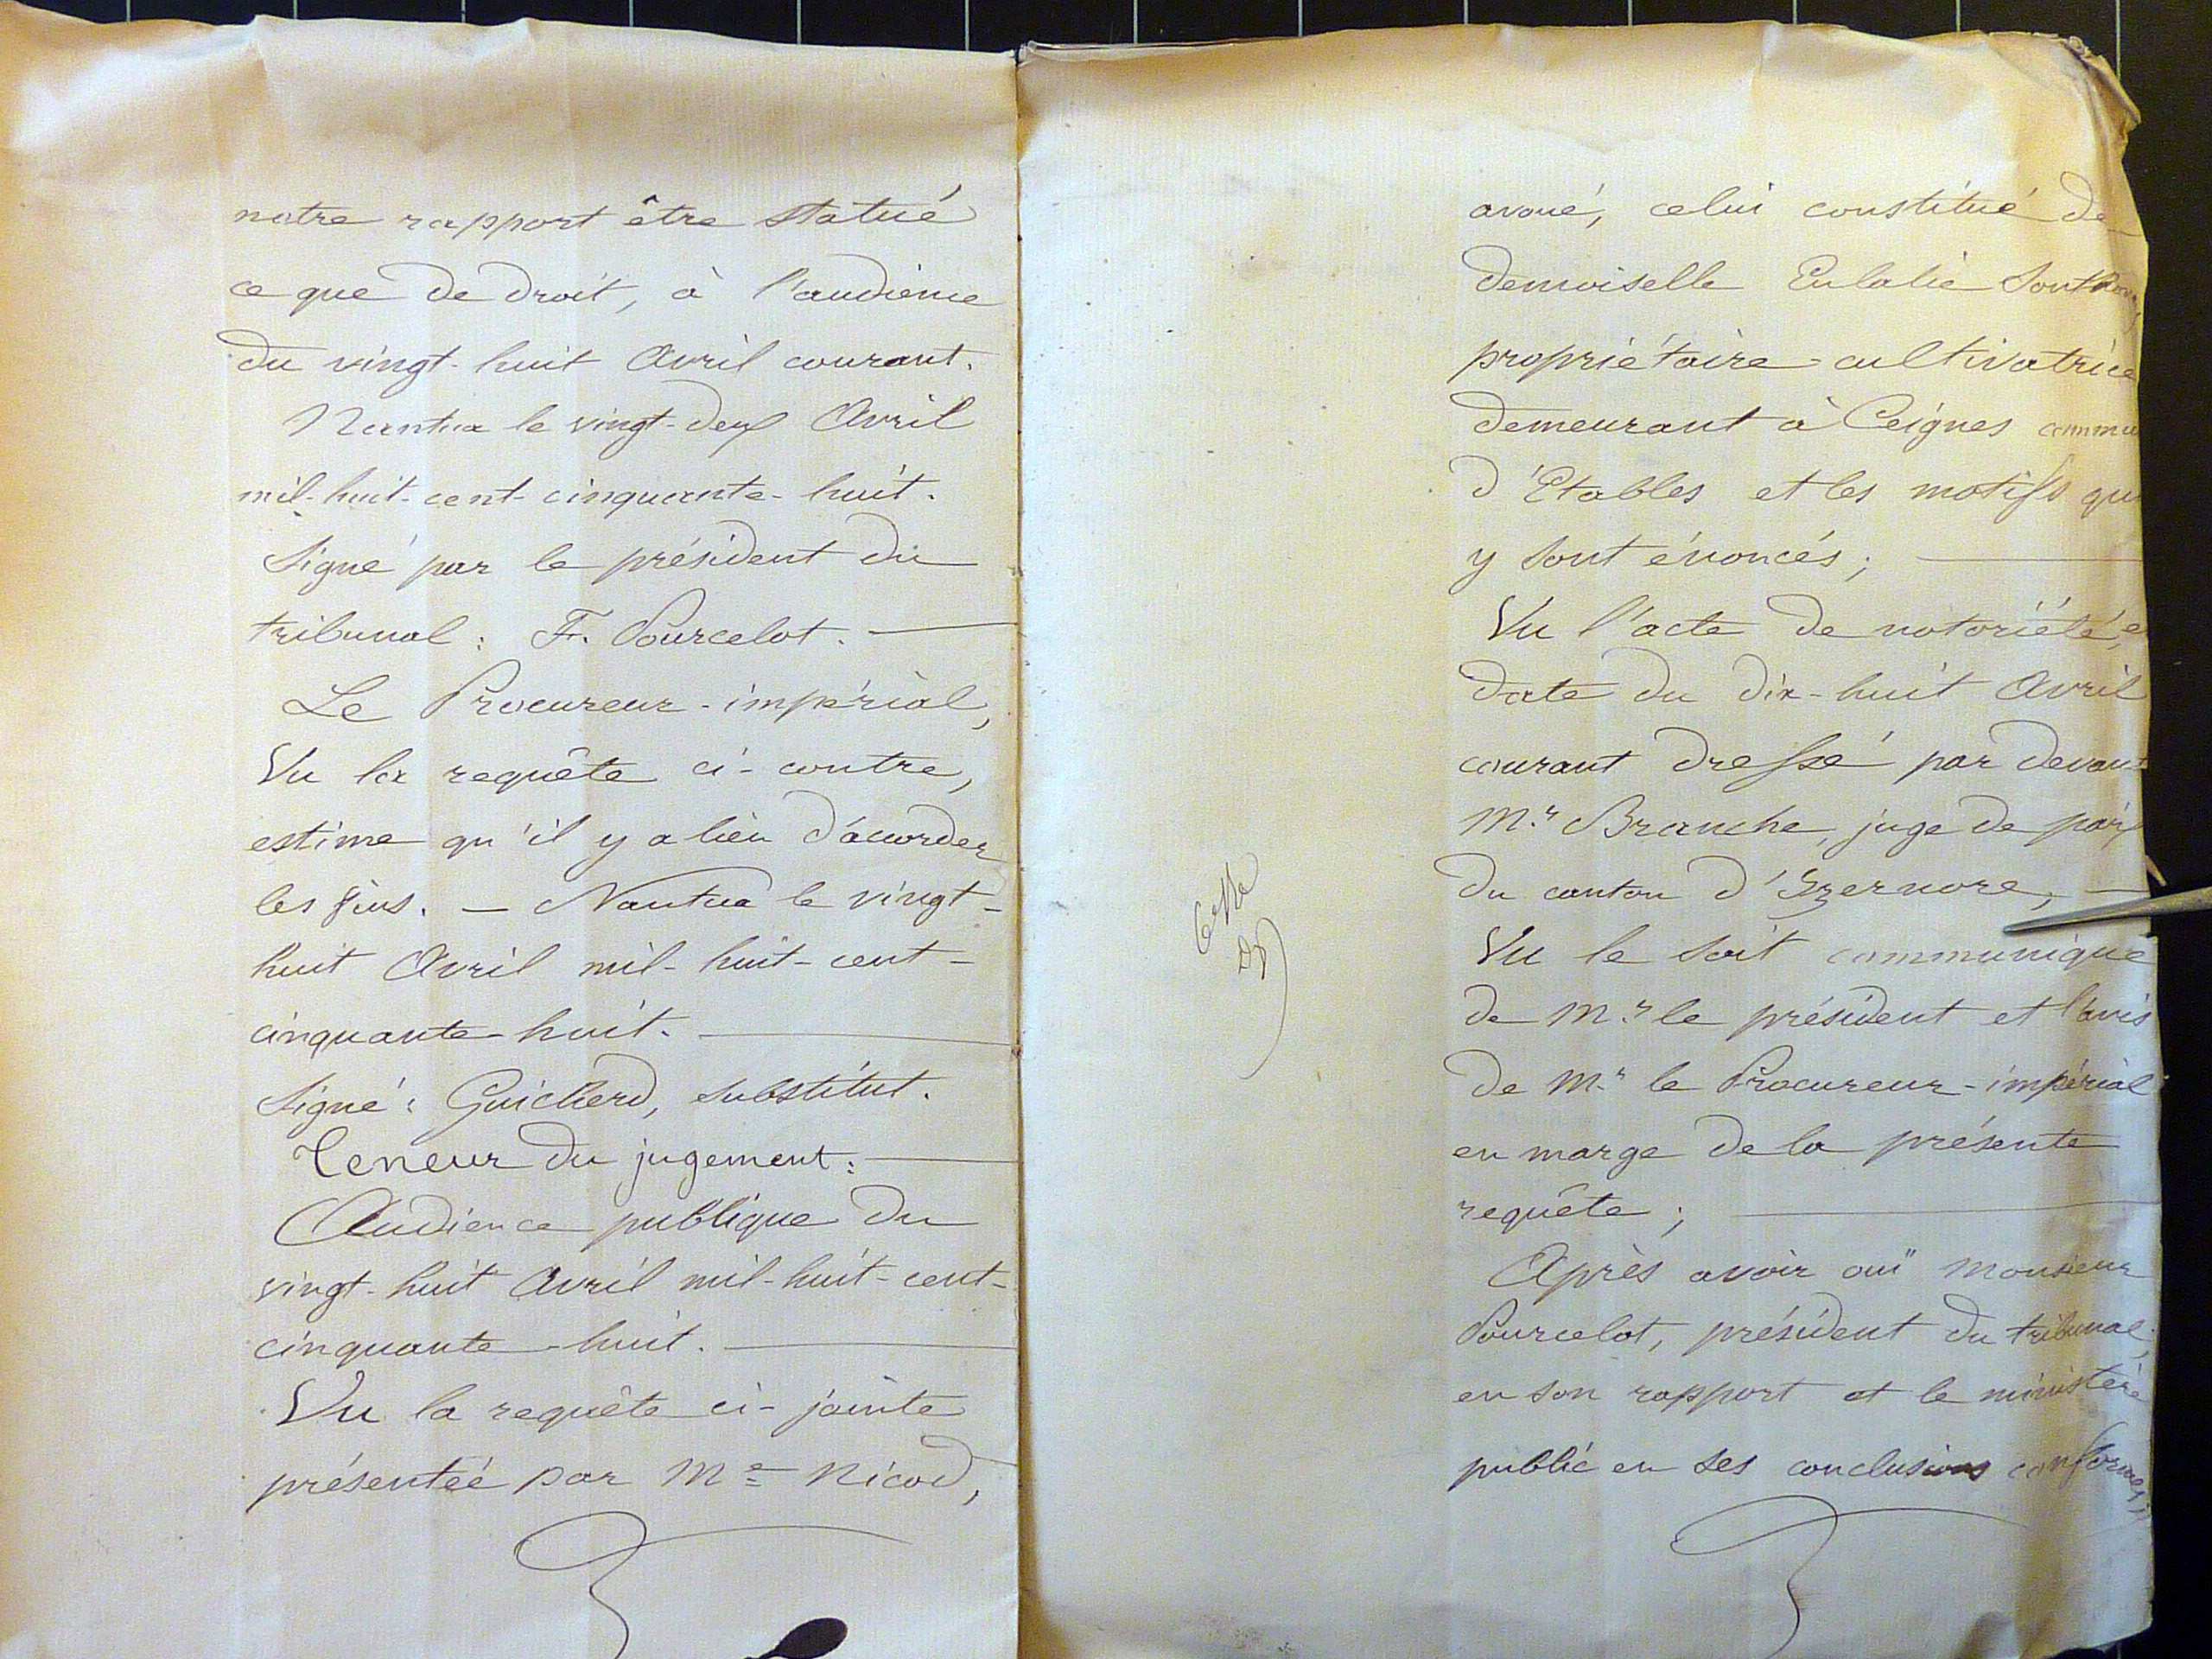 notre rapport être statué
ce que de droit, à l'audience
du vingt-huit Avril courant.
Nantua le vingt-deux Avril
mil-huit-cent-cinquante-huit.
Signé par le président du
tribunal : F. Pourcelot. —
Le Procureur-impérial,
Vu la requête ci-contre,
estime qu'il y a lieu d'accorder
les fins. — Nantua le vingt-
huit Avril mil-huit-cent-
cinquante-huit. —
Signé : Guicherd, substitut.
Teneur du jugement : —
Audience publique du
vingt-huit Avril mil-huit-cent-
cinquante-huit. —
Vu la requête ci-jointe
présentée par Me Nicod,
avoué, celui constitué de
demoiselle Eulalie
propriétaire-cultivatrice
demeurant à Ceignes commu
d'Etables et les motifs qui
y sont énoncés ; —
Vu l'acte de notoriété, e
date du dix-huit Avril
courant dressé par devant
Mr Branche, juge de paix
du canton d'Izernore, —
Vu le soit communiqué
de Mr le président et l'avis
de Mr le Procureur-impérial
en marge de la présente
requête ; —
Après avoir ouï monsieur
Pourcelot, président du tribunal,
en son rapport et le ministère
public en ses conclusions conformes ;